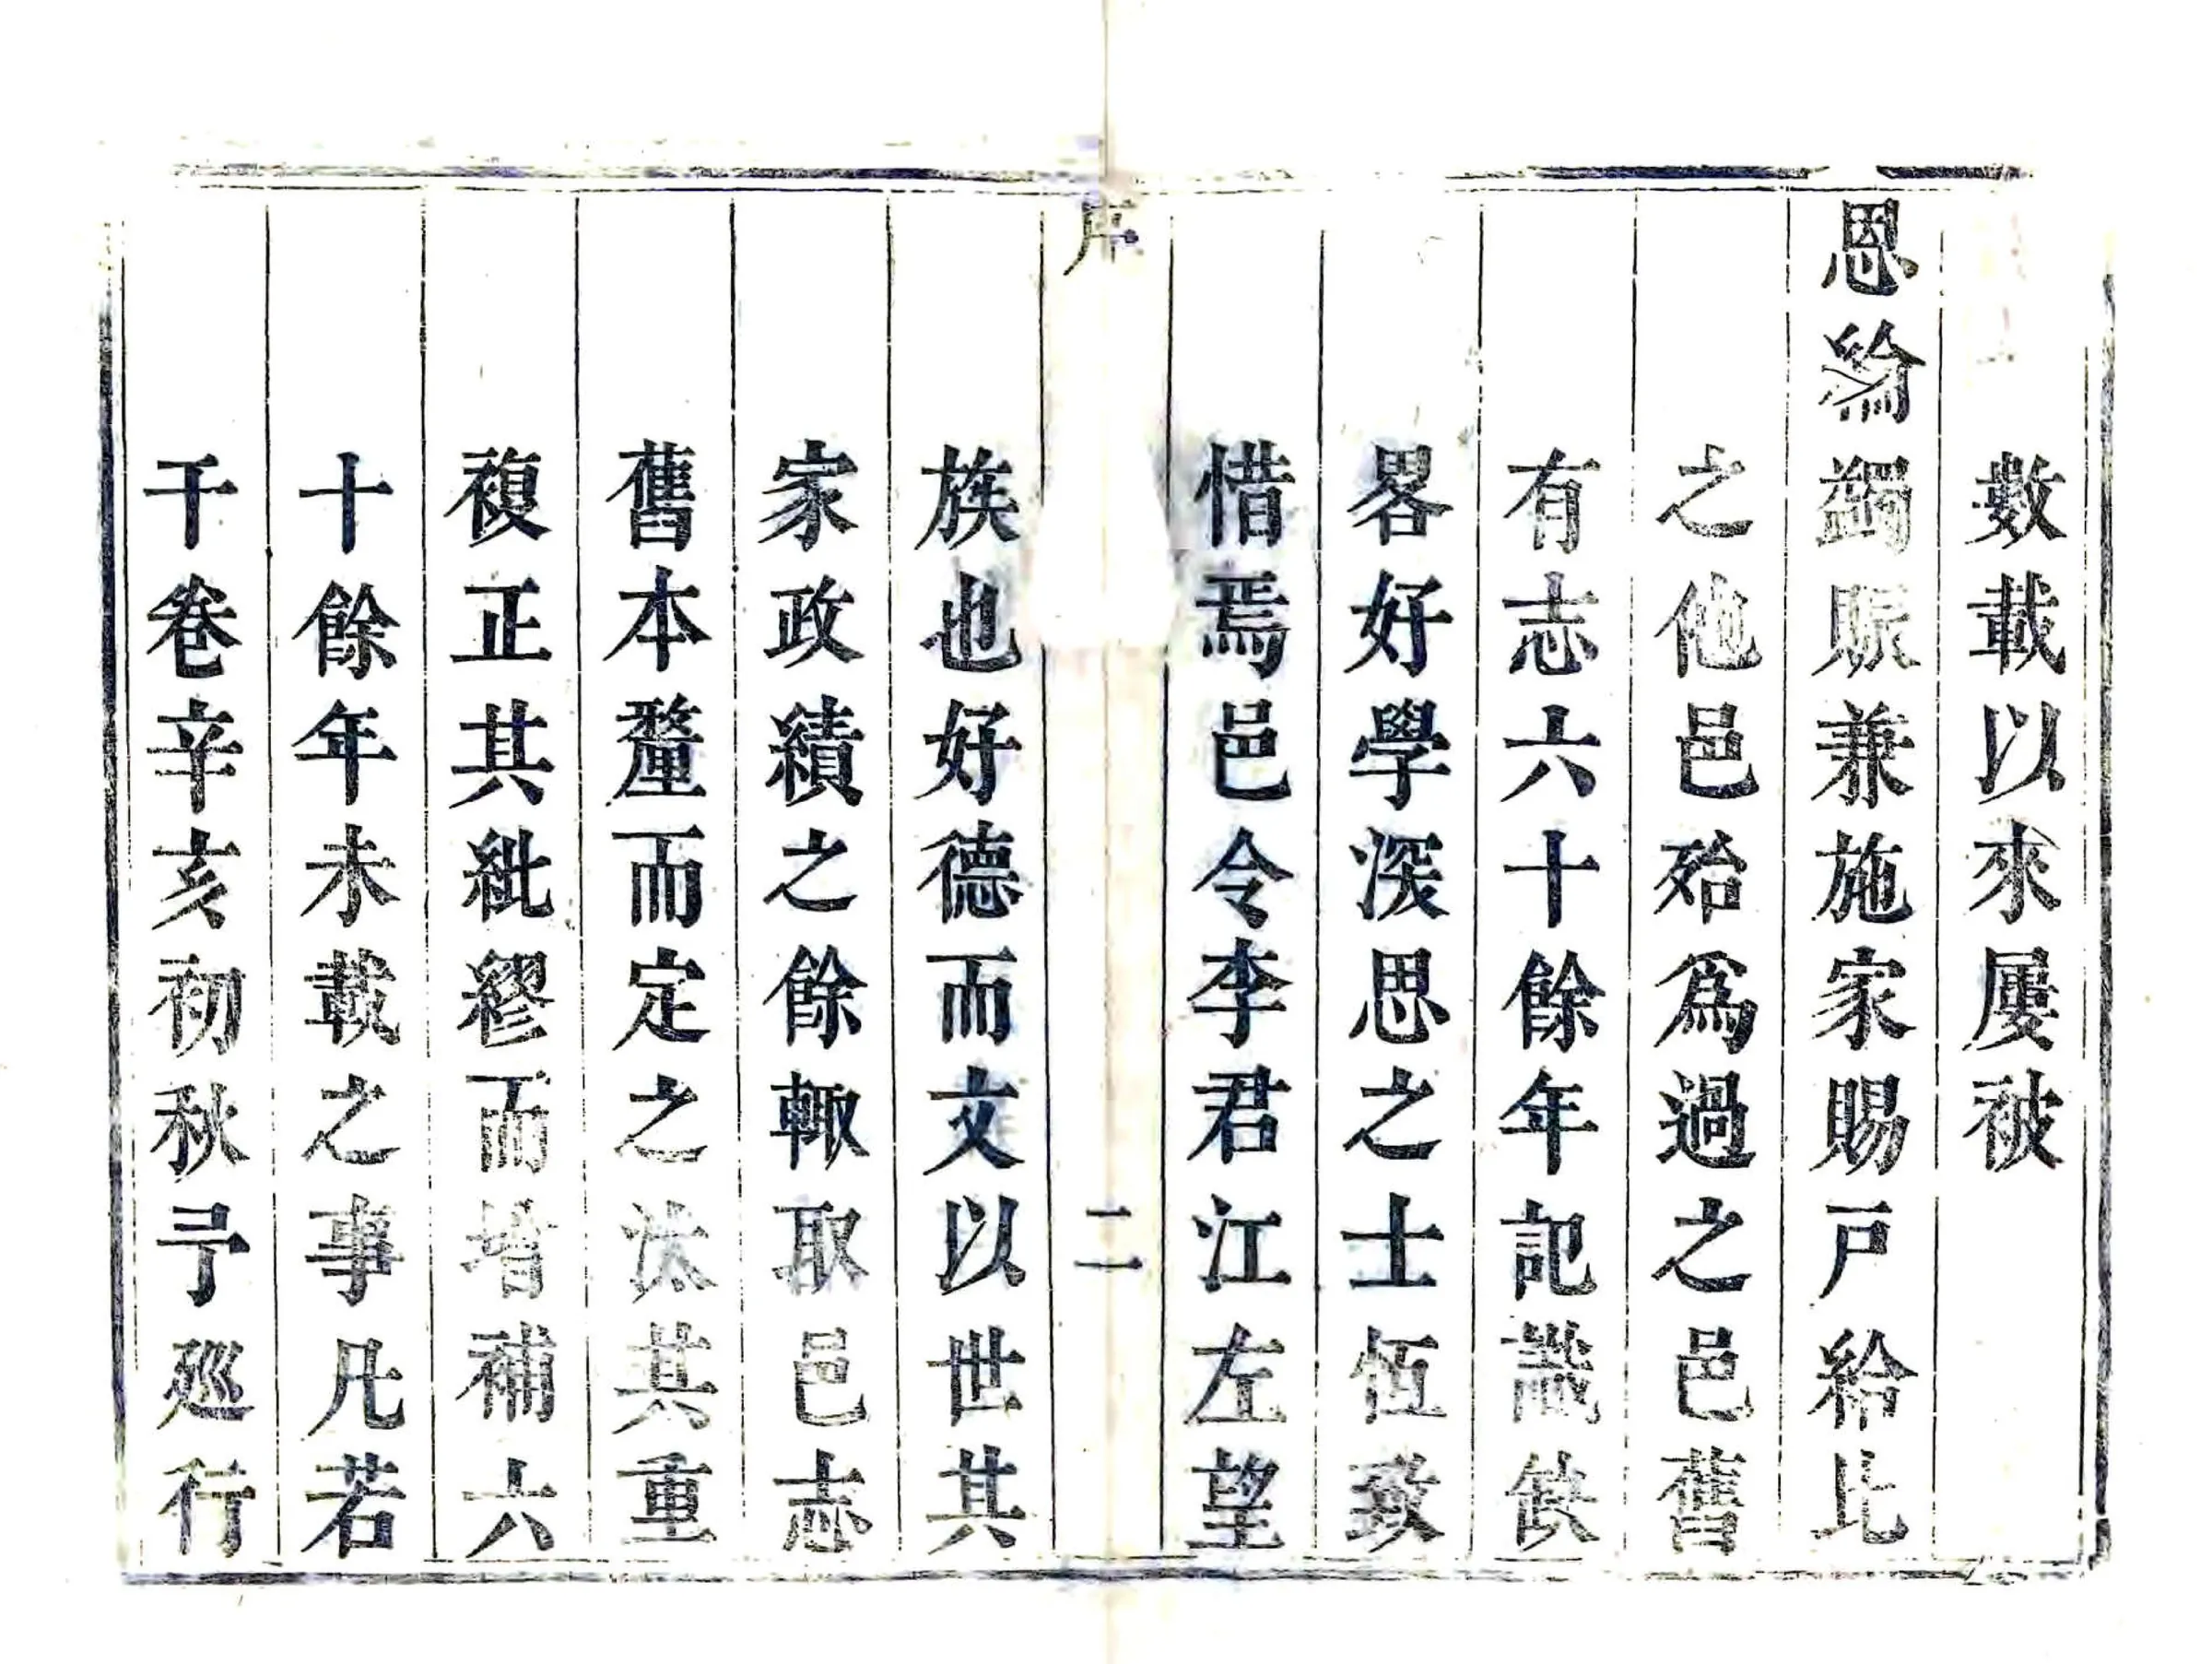 數載以來屢被
恩綸蠲賑兼施家賜戸給比
之他邑殆爲過之邑舊
有志六十餘年記識缺
畧好學深思之士恆致
惜焉邑令李君江左望
序
二
族也好德而文以世其
家政績之餘輙取邑志
舊本釐而定之汰其重
複正其紕繆而增補六
十餘年未載之事凡若
干卷辛亥初秋予廵行